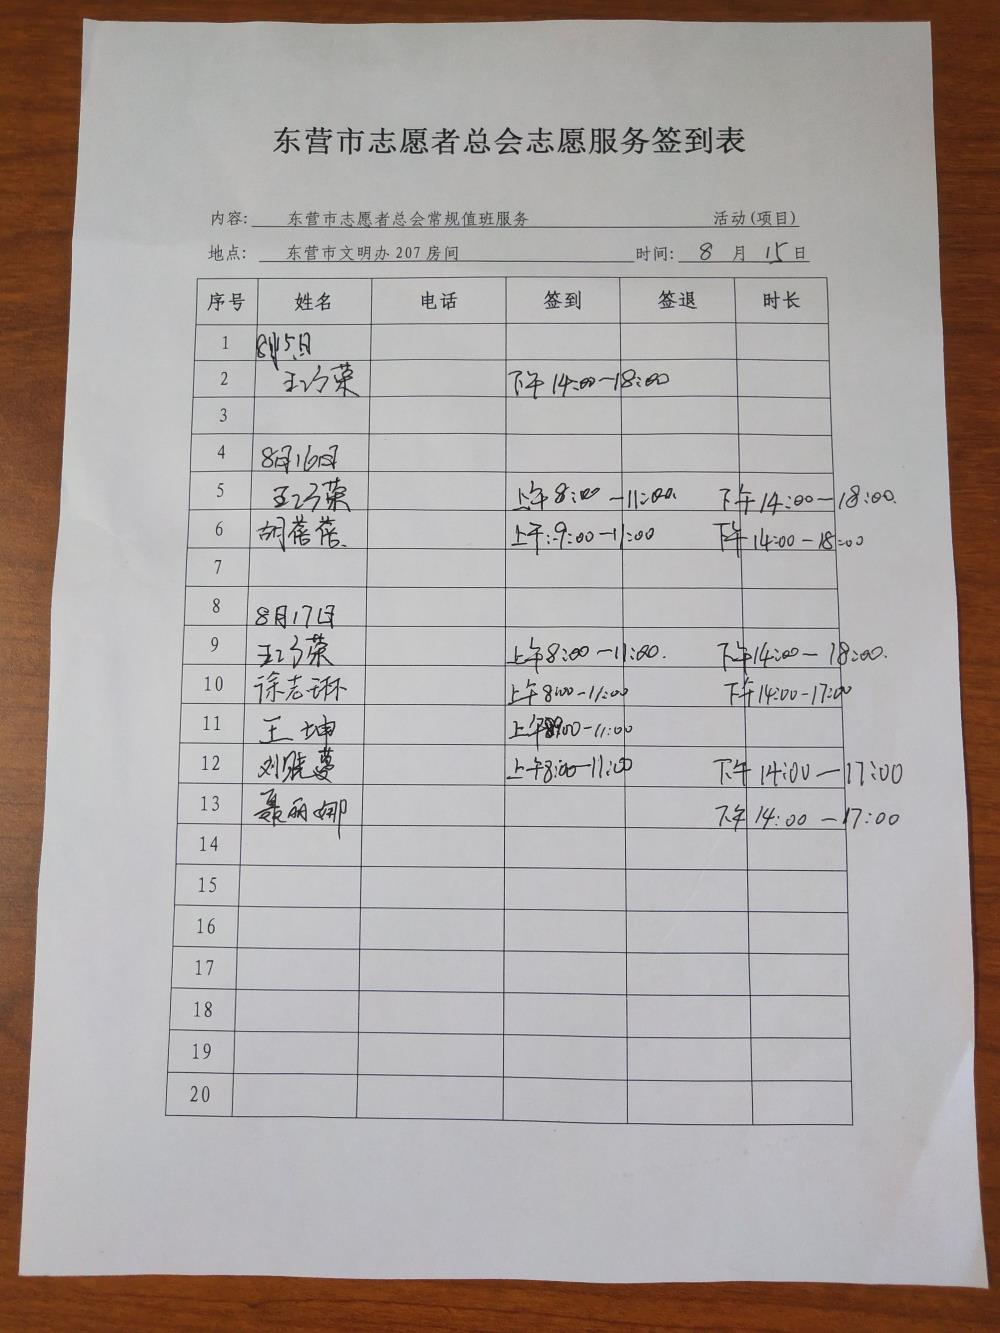 东营市志愿者总会志愿服务签到表
内容: 东营市志愿者总会常规值班服务 活动(项目)
地点: 东营市文明办207房间 时间: 8 月 15 日
序号 姓名 电话 签到 签退 时长
1 8月15日
2 王巧荣 下午14:00—18:00
3
4 8月16日
5 王巧荣 上午8:00—11:00. 下午14:00—18:00.
6 胡蓓蓓. 上午:9:00—11:00 下午14:00—18:00
7
8 8月17日
9 王巧荣 上午8:00—11:00. 下午14:00—18:00.
10 徐志琳 上午8:00—11:00 下午14:00-17:00
11 王坤 上午 00—11:00
12 刘晓蔓 上午8:00—11:00 下午14:00—17:00
13 聂丽娜 下午14:00—17:00
14
15
16
17
18
19
20